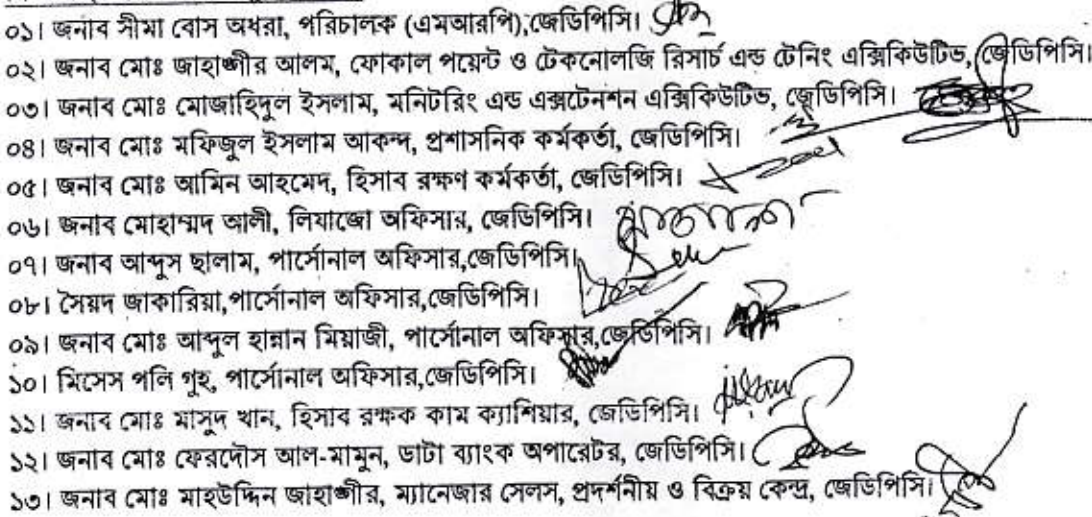 ০১। জনাব সীমা বোস অধরা, পরিচালক (এমআরপি),জেডিপিসি।
০২। জনাব মোঃ জাহাঙ্গীর আলম, ফোকাল পয়েন্ট ও টেকনোলজি রিসার্চ এন্ড টেনিং এক্সিকিউটিভ, জেডিপিসি।
০৩। জনাব মোঃ মোজাহিদুল ইসলাম, মনিটরিং এন্ড এক্সটেনশন এক্সিকিউটিভ, জেডিপিসি।
০৪। জনাব মোঃ মফিজুল ইসলাম আকন্দ, প্রশাসনিক কর্মকর্তা, জেডিপিসি।
০৫। জনাব মোঃ আমিন আহমেদ, হিসাব রক্ষণ কর্মকর্তা, জেডিপিসি।
০৬। জনাব মোহাম্মদ আলী, লিযাজো অফিসার, জেডিপিসি।
০৭। জনাব আব্দুস ছালাম, পার্সোনাল অফিসার,জেডিপিসি।
০৮। সৈয়দ জাকারিয়া,পার্সোনাল অফিসার,জেডিপিসি।
০৯। জনাব মোঃ আব্দুল হান্নান মিয়াজী, পার্সোনাল অফিসার,জেডিপিসি।
১০। মিসেস পলি গুহ, পার্সোনাল অফিসার,জেডিপিসি।
১১। জনাব মোঃ মাসুদ খান, হিসাব রক্ষক কাম ক্যাশিয়ার, জেডিপিসি।
১২। জনাব মোঃ ফেরদৌস আল-মামুন, ডাটা ব্যাংক অপারেটর, জেডিপিসি।
১৩। জনাব মোঃ মাহউদ্দিন জাহাঙ্গীর, ম্যানেজার সেলস, প্রদর্শনীয় ও বিক্রয় কেন্দ্র, জেডিপিসি।